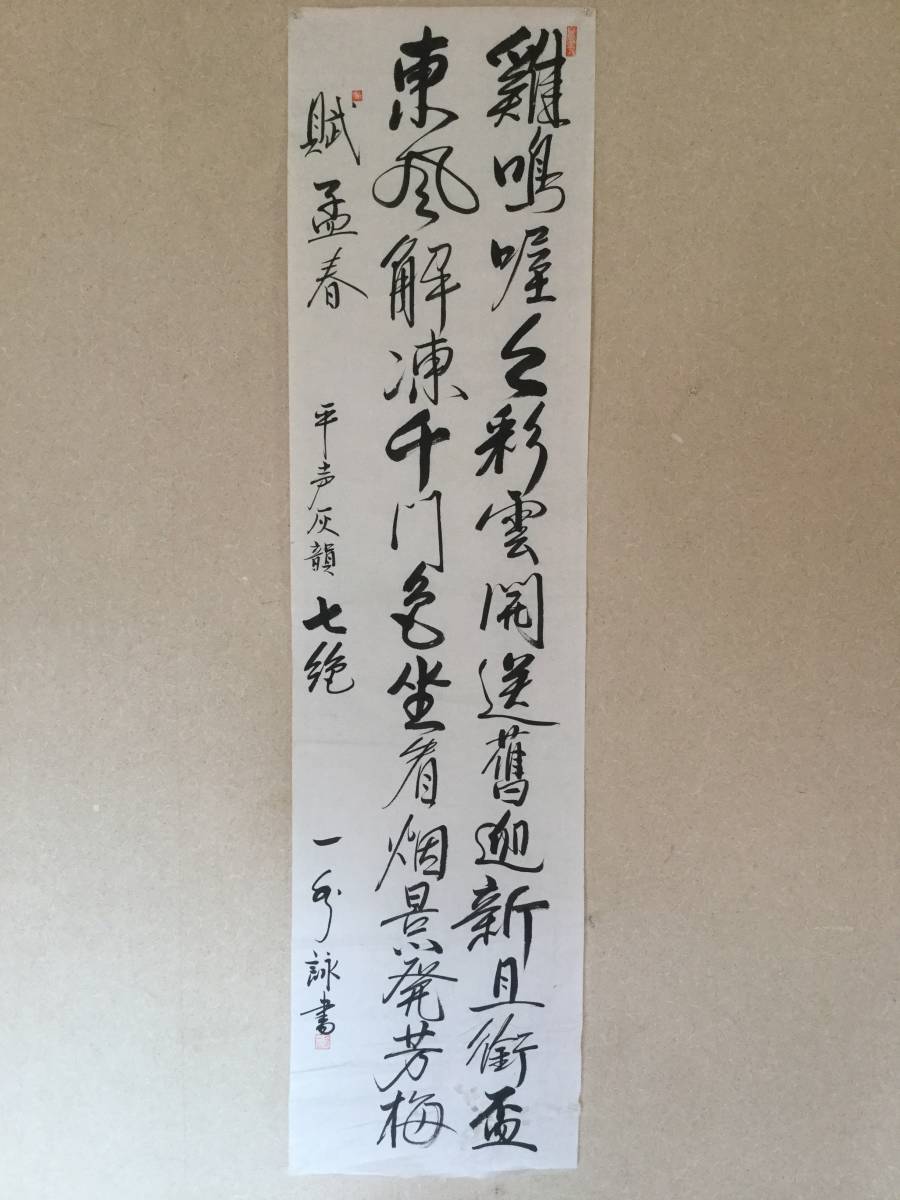 雞鳴喔々彩雲開送舊迎新且銜盃
東風解凍千門色坐看烟景発芳梅
賦孟春 平声灰韻 七絶
一 詠書